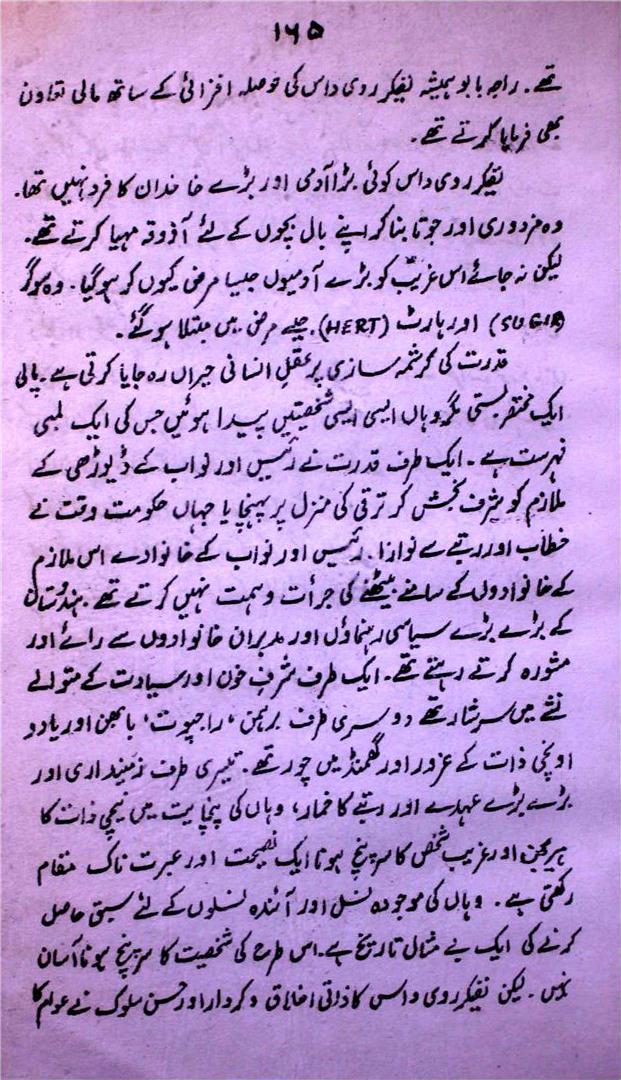 ۱۶۵
تھے۔ راجہ بابو ہمیشہ نفیکر روی داس کی حوصلہ افزائی کے ساتھ مالی تعاون
بھی فرمایا کرتے تھے۔
نفیکر روی داس کوئی بڑا آدمی اور بڑے خاندان کا فرد نہیں تھا۔
وہ مزدوری اور جوتا بنا کر اپنے بال بچوں کے لئے آذوقہ مہیا کرتے تھے۔
لیکن نہ جانے اس غریب کو بڑے آدمیوں جیسا مرض کیوں کر ہو گیا۔ وہ سوگر
(SUGIR) اور ہارٹ (HERT) جیسے مرض میں مبتلا ہو گئے۔
قدرت کی کرشمہ سازی پر عقل انسانی حیراں رہ جایا کرتی ہے۔ پالی
ایک مختصر بستی مگر وہاں ایسی ایسی شخصیتیں پیدا ہوئیں جس کی ایک لمبی
فہرست ہے۔ ایک طرف قدرت نے رئیس اور نواب کے ڈیوڑھی کے
ملازم کو شرف بخش کر ترقی کی منزل پر پہنچایا جہاں حکومت وقت نے
خطاب اور رتبے سے نوازا۔ رئیس اور نواب کے خانوادے اس ملازم
کے خانوادوں کے سامنے بیٹھنے کی جرأت و ہمت نہیں کرتے تھے۔ ہندوستان
کے بڑے بڑے سیاسی رہنماؤں اور مدبران خانوادوں سے رائے اور
مشورہ کرتے رہتے تھے۔ ایک طرف شرف خون اور سیادت کے متوالے
نشے میں سرشار تھے دوسری طرف برہمن، راجپوت، بابھن اور یادو
اونچی ذات کے غرور اور گھمنڈ میں چور تھے۔ تیسری طرف زمینداری اور
بڑے بڑے عہدے اور رتبے کا خمار، وہاں کی پنچایت میں نیچی ذات کا
ہریجن اور غریب شخص کا سرپنچ ہونا ایک نصیحت اور عبرت ناک مقام
رکھتی ہے۔ وہاں کی موجودہ نسل اور آئندہ نسلوں کے لئے سبق حاصل
کرنے کی ایک بے مثال تاریخ ہے۔ اس طرح کی شخصیت کا سرپنچ ہونا آسان
نہیں۔ لیکن نفیکر روی داس کا ذاتی اخلاق و کردار اور حسن سلوک نے عوام کا